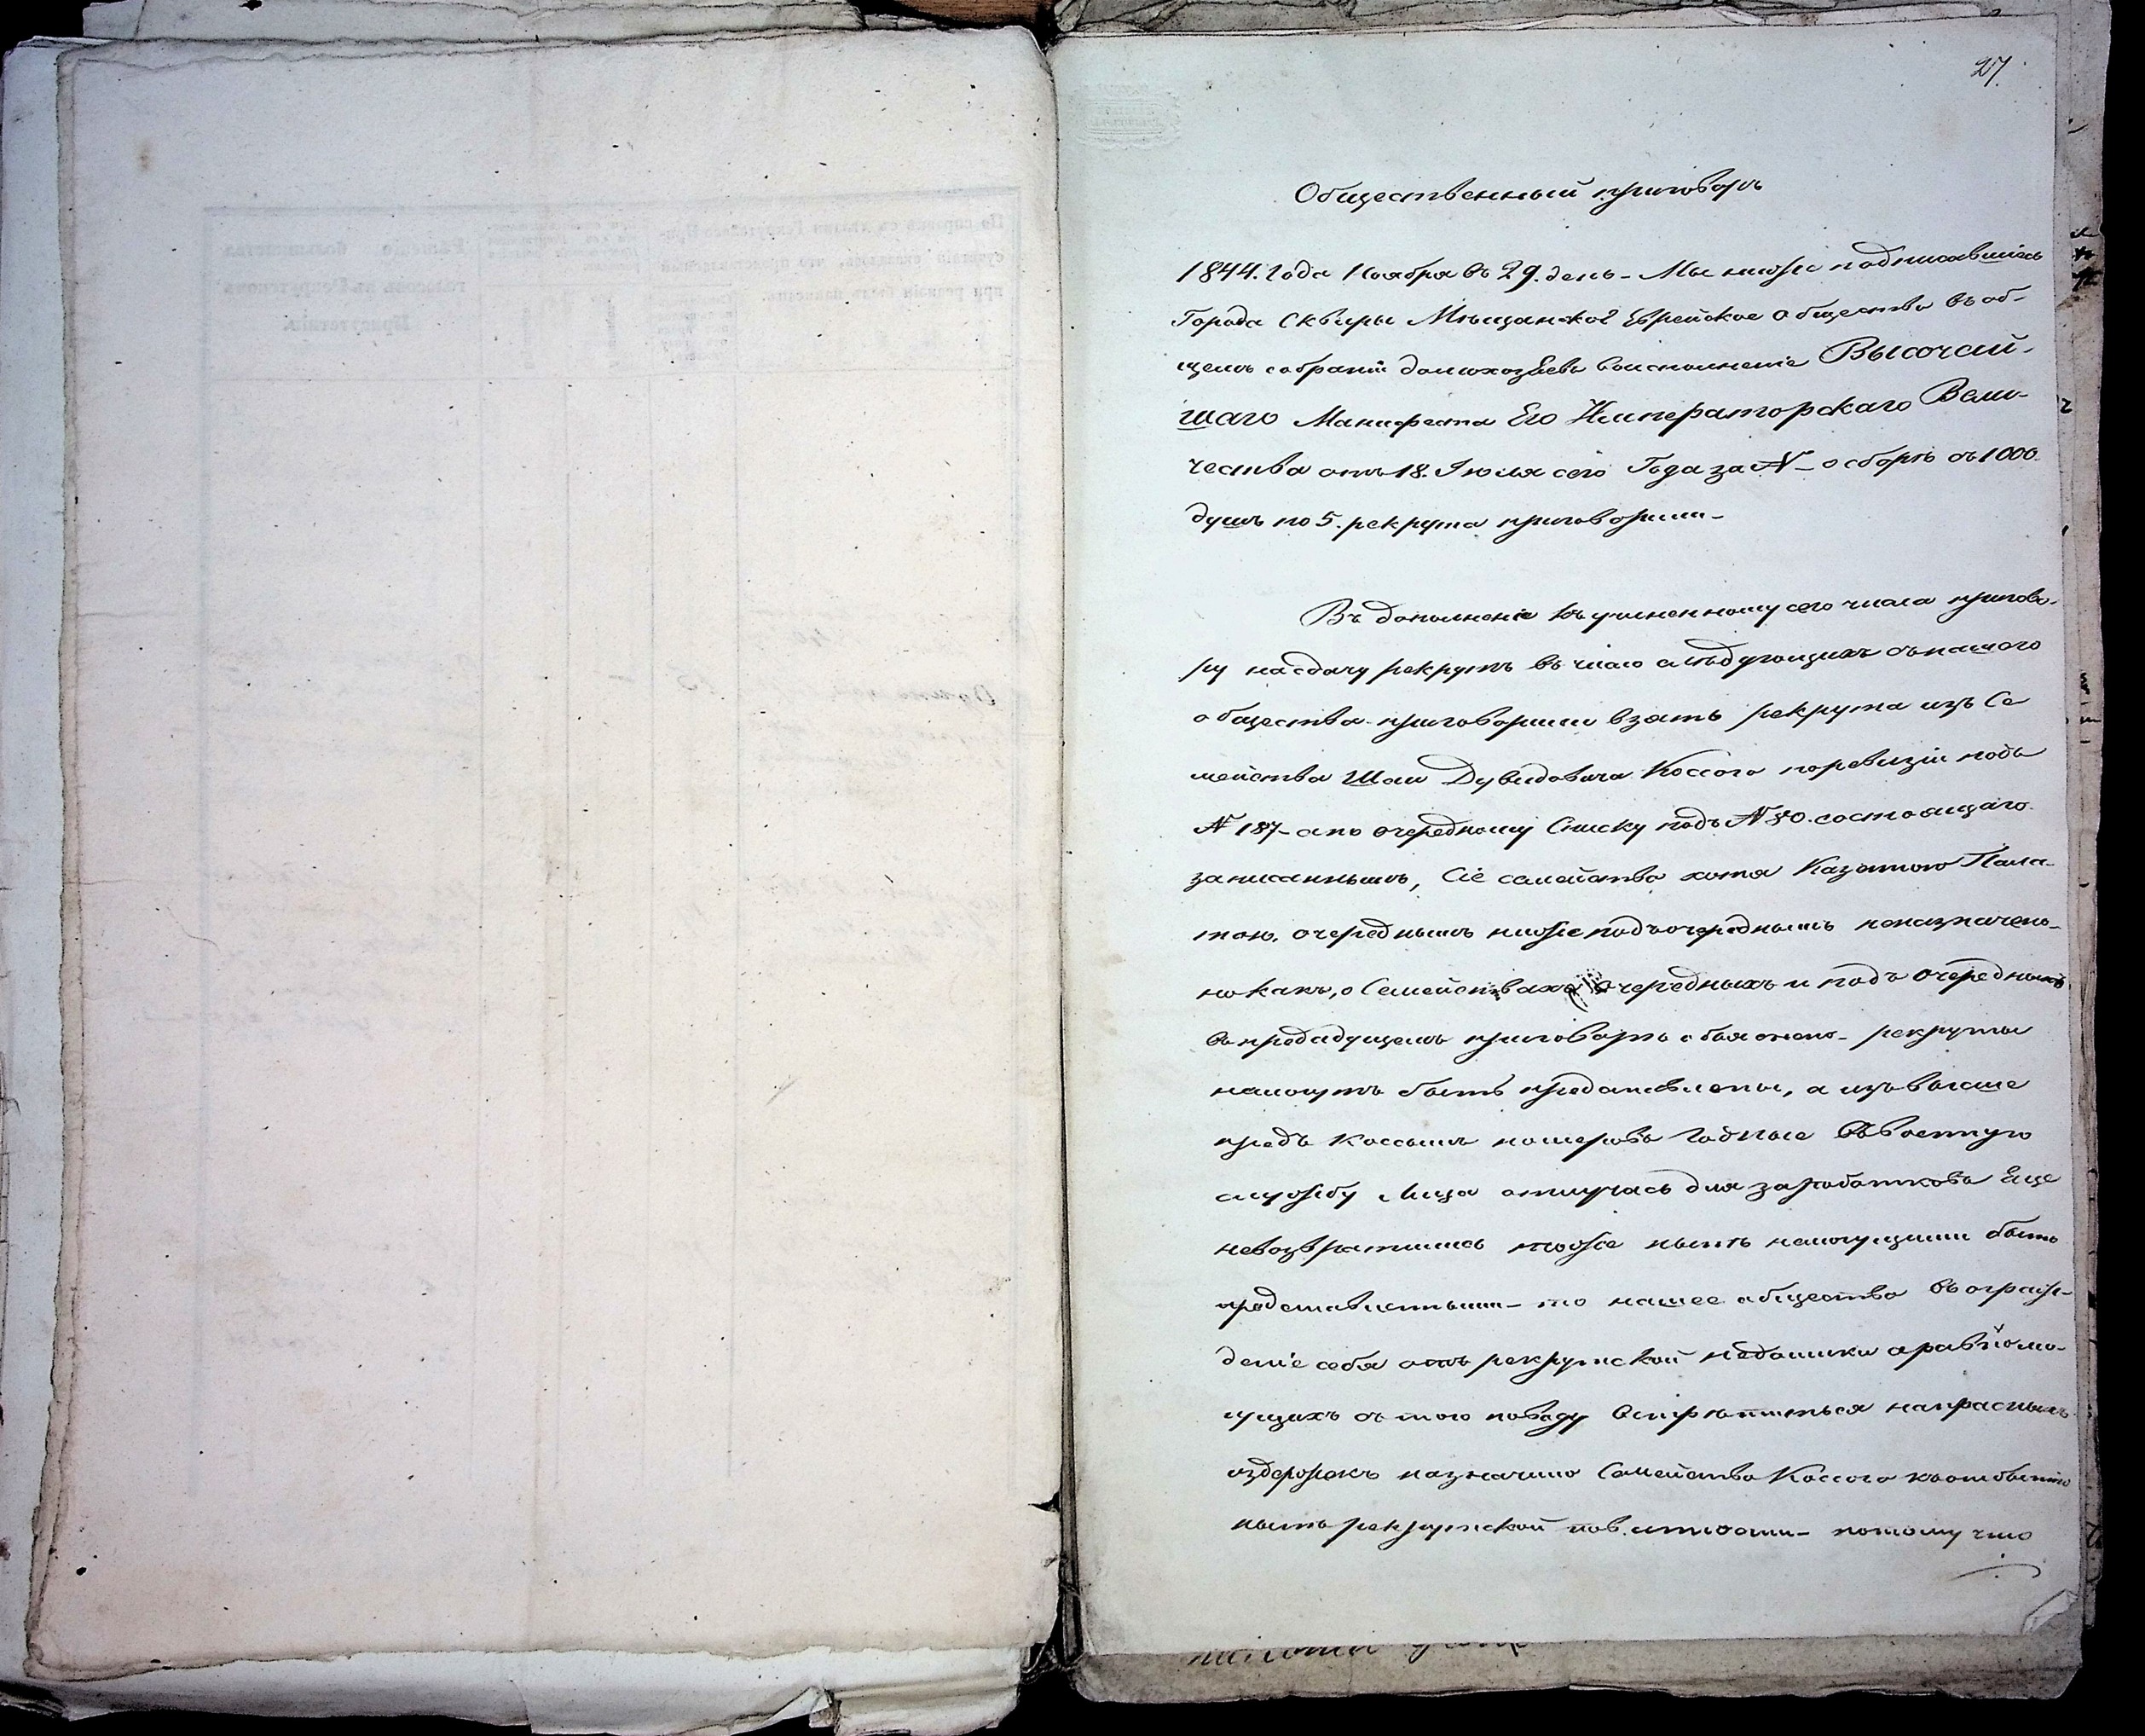 27.
Общественный приговоръ
1844. Года Ноября въ 29. день – Мы нижеподписавшіесь
Города Сквиры Мѣщанское Еврейское общество въ об-
щемъ собраніи домохозяевъ воисполненіе Высочай-
шаго Манифеста Его Императорскаго Вели-
чества отъ 18. Іюля сего Года за № – о сборѣ съ 1000.
душъ по 5. рекрута приговорили –
Въ дополненіе къ учиненному сего числа пригово-
ру на сдачу рекрутъ въ число слѣдующихъ съ нашого
общества приговорили взять рекрута изъ Се
мейства Шаи Дувидовича Коссого по ревизіи подъ
№ 187 – а по очередному Списку подъ № 80. состоящаго
записаннымъ, Сіе семейство хотя Казенною Пала-
тою, очереднымъ ниже подъочереднымъ неназначено –
но какъ, о Семействахъ очередныхъ и подъ очередныхъ
въ предидущемъ приговорѣ объяснено – рекруты
немогутъ быть представлены, а изъ высше
предъ Коссымъ номеровъ годные въ Военную
службу лица отлучась для заработковъ Еще
невозвратились тоже нынѣ немогущими быть
представленными – то нашее общество въ ограж-
деніе себя отъ рекрутской недоимки а равно мо-
гущихъ съ того поводу встрѣтиться напрасныхъ
издержекъ назначило Семейство Коссого къ отбытію
нынѣ рекрутской повинности – потому что